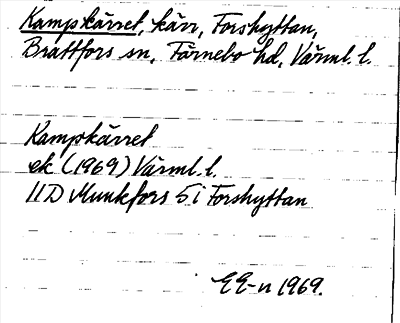 Kampkärret, kärr, Forshyttan,
Brattfors sn, Färnebo hd, Värml. l.
Kampkärret
ek (1969) Värml. l.
11D Munkfors 5i Forshyttan
EE-n 1969.